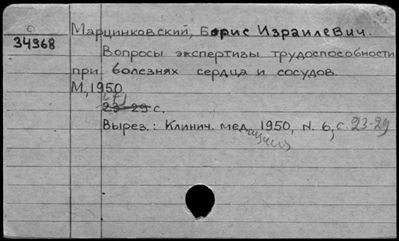 с
34968
Марцинковский, Борис Израилевич.
Вопросы экспертизы трудоспособности
при болезнях сердца и сосудов.
М, 1950
[7]
23-29 с.
Вырез.: Клинич. медицина 1950, N. 6, с. 23-29